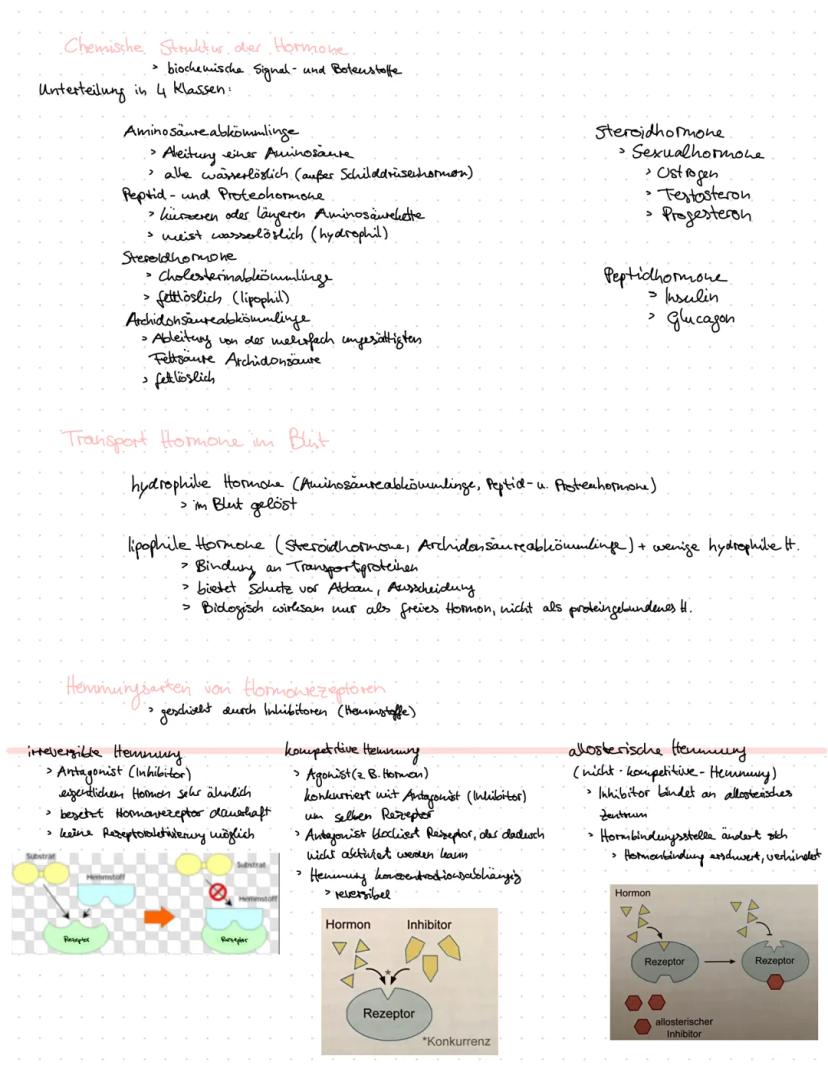 Chemische Struktur der Hormone
> biochemische Signal- und Botenstoffe
Unterteilung in 4 Klassen:
Aminosäureabkömmlinge
> Ableitung einer Aminosäure
> alle wasserlöslich (außer Schilddrüsenhormon)
Peptid- und Proteohormone
> kürzeren oder längeren Aminosäurekette
> meist wasserlöslich (hydrophil)
Steroidhormone
> Cholesterinabkömmlinge
> fettlöslich (lipophil)
Archidonsäureabkömmlinge
> Ableitung von der mehrfach ungesättigten
Fettsäure Archidonsäure
> fettlöslich
Steroidhormone
> Sexualhormone
> Östrogen
> Testosteron
> Progesteron
Peptidhormone
> Insulin
> Glucagon
Transport Hormone im Blut
hydrophile Hormone (Aminosäureabkömmlinge, Peptid- u. Proteohormone)
> im Blut gelöst
lipophile Hormone (Steroidhormone, Archidonsäureabkömmlinge) + wenige hydrophile H.
> Bindung an Transportproteinen
> bietet Schutz vor Abbau, Ausscheidung
> Biologisch wirksam nur als freies Hormon, nicht als proteingebundenes H.
Hemmungsarten von Hormonrezeptoren
> geschieht durch Inhibitoren (Hemmstoffe)
irreversible Hemmung
> Antagonist (Inhibitor)
eigentlichem Hormon sehr ähnlich
> besetzt Hormonrezeptor dauerhaft
> keine Rezeptoraktivierung möglich
Substrat
Hemmstoff
Rezeptor
Substrat
Hemmstoff
Rezeptor
kompetitive Hemmung
> Agonist (z.B. Hormon)
konkurriert mit Antagonist (Inhibitor)
um selben Rezeptor
> Antagonist blockiert Rezeptor, der dadurch
nicht aktiviert werden kann
> Hemmung konzentrationsabhängig
> reversibel
Hormon Inhibitor
*
Rezeptor
*Konkurrenz
allosterische Hemmung
(nicht-kompetitive-Hemmung)
> Inhibitor bindet an allosterisches
Zentrum
> Hormbindungsstelle ändert sich
> Hormonbindung erschwert, verhindert
Hormon
Rezeptor Rezeptor
allosterischer
Inhibitor